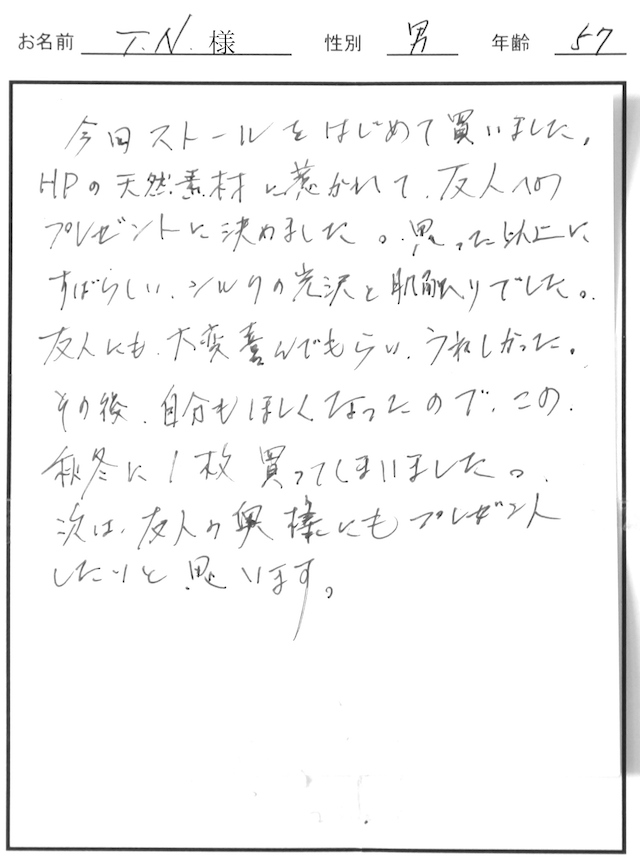 お名前 T.N. 様 性別 男 年齢 57
今回ストールをはじめて買いました。
HPの天然素材に惹かれて、友人への
プレゼントに決めました。思った以上に
すばらしい、シルクの光沢と肌触りでした。
友人にも、大変喜んでもらい、うれしかった。
その後、自分もほしくなったので、この
秋冬に1枚買ってしまいました。
次は、友人の奥様にもプレゼント
したいと思います。